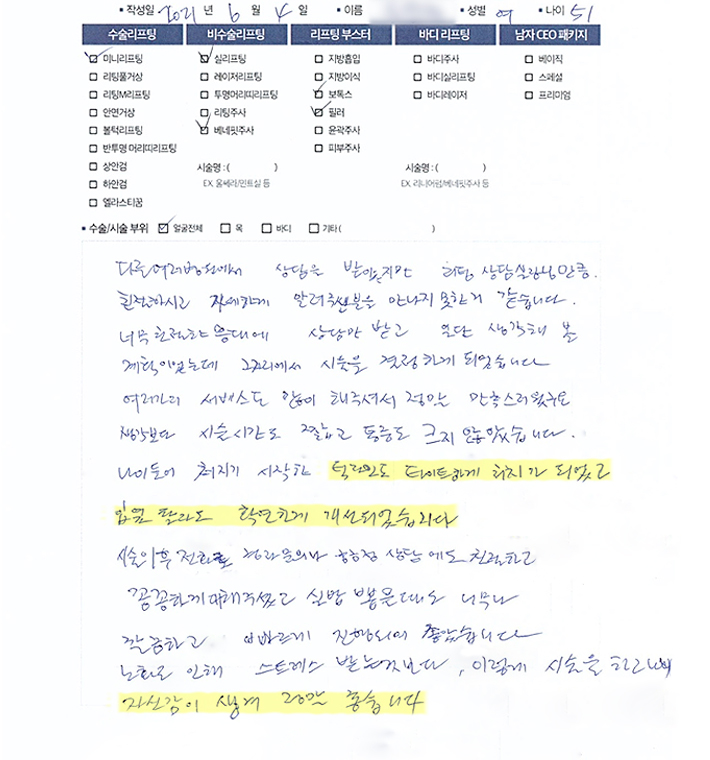 • 작성일 2021 년 6 월 4 일 • 이름 • 성별 여 • 나이 51
수술리프팅 비수술리프팅 리프팅 부스터 바디 리프팅 남자 CEO 패키지
미니리프팅 실리프팅 지방흡입 바디주사 베이직
리팅풀거상 레이저리프팅 지방이식 바디실리프팅 스페셜
리팅M리프팅 투명머리띠리프팅 보톡스 바디레이저 프리미엄
안면거상 리팅주사 필러
볼턱리프팅 베네핏주사 윤곽주사
반투명 머리띠리프팅 피부주사
상안검 시술명 : ( ) 시술명 : ( )
하안검 EX. 울쎄라/민트실 등 EX. 리니어펌/베네핏주사 등
엘라스티꿈
• 수술/시술 부위 얼굴전체 목 바디 기타 ( )
다른 여러병원에서 상담을 받아봤지만 리팅 상담실장님만큼
친절하시고 자세하게 알려주신분을 만나지 못한거 같습니다.
너무 친절한 응대에 상담만 받고 일단 생각해 볼
계획이었는데 그자리에서 시술을 결정하게 되었습니다
여러가지 서비스도 많이 해주셔서 정말 만족스러웠구요
생각보다 시술시간도 짧고 통증도 크지 않았습니다.
나이들어 처지기 시작한 턱라인도 타이트하게 처치가 되었고
입옆 팔자도 확연하게 개선되었습니다
시술이후 전화로 경과문의나 궁금점 상담에도 친절하고
꼼꼼하게 대해주셨고 실밥 뽑을때도 너무나
깔끔하고 빠르게 진행되어 좋았습니다
노화로 인해 스트레스 받는것보다, 이렇게 시술을 하고나니
자신감이 생겨 정말 좋습니다